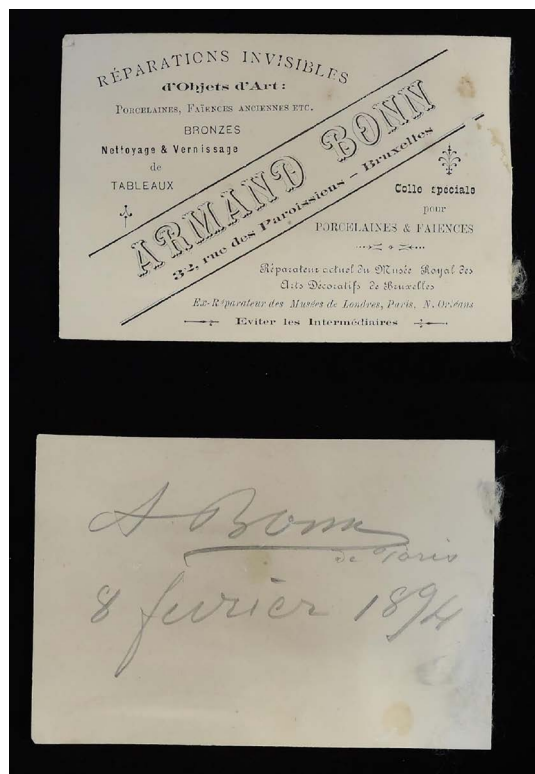 RÉPARATIONS INVISIBLES
d'Objets d'Art:
PORCELAINES, FAÏENCES ANCIENNES ETC.
BRONZES
Nettoyage & Vernissage
de
TABLEAUX
ARMAND BONN
32, rue des Paroissiens – Bruxelles
Colle speciale
pour
PORCELAINES & FAIENCES
Réparateur actuel du Musée Royal des
Arts Décoratifs de Bruxelles
Ex-Réparateur des Musées de Londres, Paris, N. Orléans
Eviter les Intermédiaires
A Bonn
de Paris
8 fevrier 1894